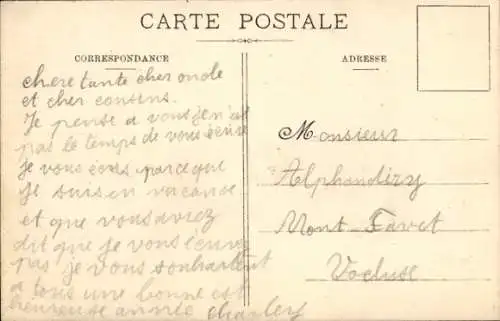 CARTE POSTALE
CORRESPONDANCE
chere tante cher oncle
et cher cousins.
Je pense a vous j'en n'ai
pas le temps de vous écrire
je vous écris parceque
je suis en vacance
et que vous aviez
dit que je vous écrive
pas je vous souhaitent
a tous une bonne est
heureuse année Charley
ADRESSE
Monsieur
Alphandéry
Mont Favet
Vocluse